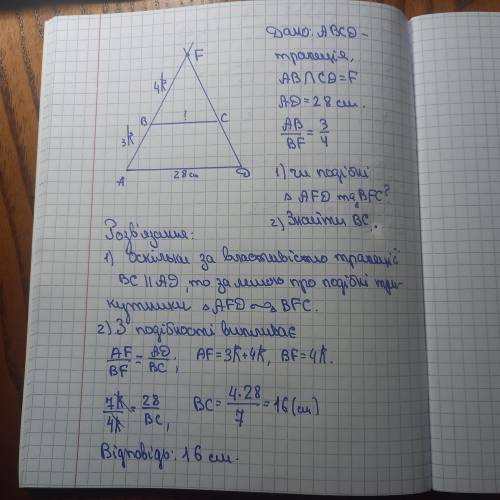 Дано: ABCD -
трапеція,
AB ∩ CD = F
AD = 28 см.
AB/BF = 3/4
1) чи подібні
△ AFD та △ BFC?
2) Знайти BC.
F
4k
B
?
C
3k
A
28 см
D
Розв'язання:
1) Оскільки за властивістю трапеції
BC || AD, то за лемою про подібні три-
кутники △ AFD ~ △ BFC.
2) З подібності випливає
AF/BF = AD/BC; AF = 3k + 4k, BF = 4k.
7k/4k = 28/BC, BC = 4·28/7 = 16 (см)
Відповідь: 16 см.